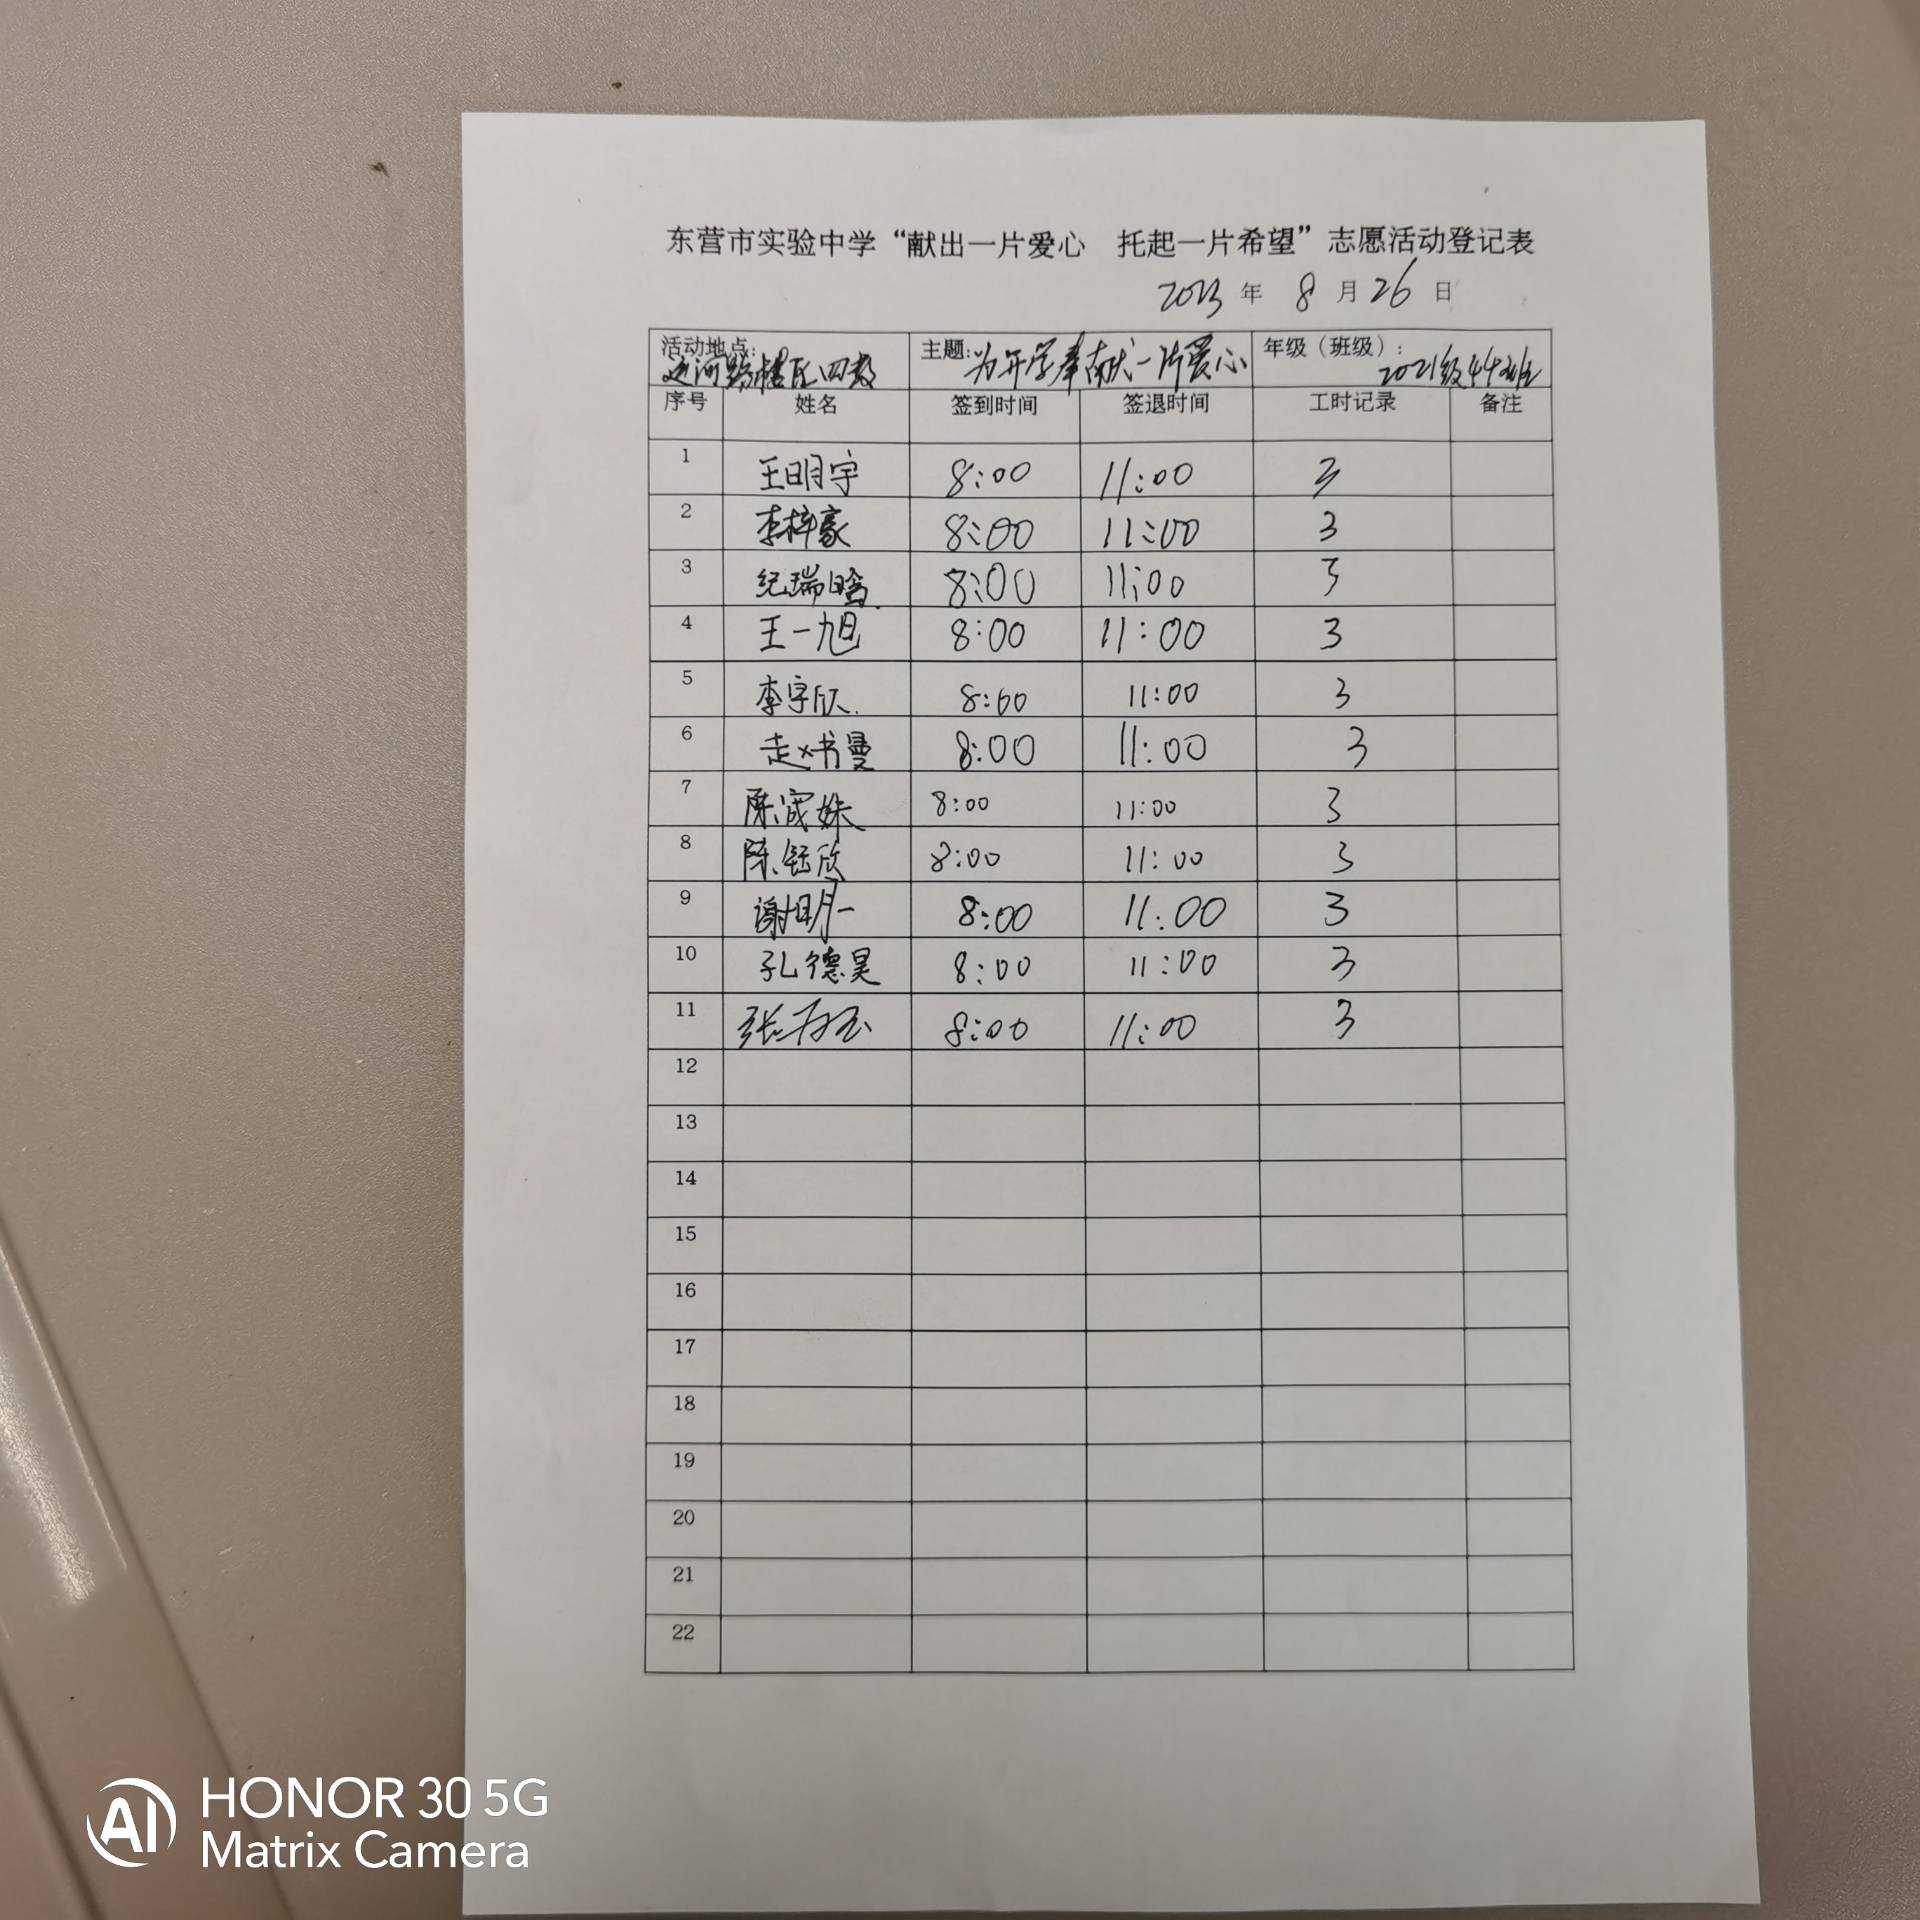 东营市实验中学“献出一片爱心 托起一片希望”志愿活动登记表
2023 年 8 月 26 日
活动地点: 运河路校区四教 主题: 为开学奉献一片爱心 年级（班级）: 2021级44班
序号 姓名 签到时间 签退时间 工时记录 备注
1 王明宇 8:00 11:00 3
2 李梓豪 8:00 11:00 3
3 纪瑞晗 8:00 11:00 3
4 王一旭 8:00 11:00 3
5 李宇欣 8:00 11:00 3
6 赵书曼 8:00 11:00 3
7 陈宬姝 8:00 11:00 3
8 陈钰欣 8:00 11:00 3
9 谢明一 8:00 11:00 3
10 孔德昊 8:00 11:00 3
11 张 8:00 11:00 3
12
13
14
15
16
17
18
19
20
21
22
AI HONOR 30 5G
Matrix Camera